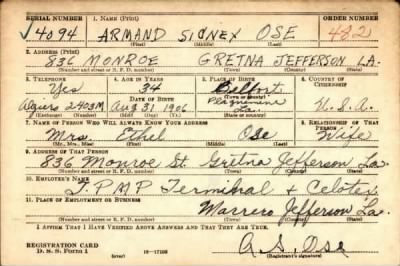 SERIAL NUMBER 1. NAME (Print) ORDER NUMBER
4094 ARMAND SIDNEY OSE 482
(First) (Middle) (Last)
2. ADDRESS (Print)
836 MONROE GRETNA JEFFERSON LA.
(Number and street or R. F. D. number) (Town) (County) (State)
3. TELEPHONE 4. AGE IN YEARS 5. PLACE OF BIRTH 6. COUNTRY OF CITIZENSHIP
Yes 34 Belfort
DATE OF BIRTH (Town or county)
Algiers 2403M Aug 31 1906 La. U.S.A.
(Exchange) (Number) (Mo.) (Day) (Yr.) (State or country)
7. NAME OF PERSON WHO WILL ALWAYS KNOW YOUR ADDRESS 8. RELATIONSHIP OF THAT PERSON
Mrs. Ethel Ose Wife
(Mr., Mrs., Miss) (First) (Middle) (Last)
9. ADDRESS OF THAT PERSON
836 Monroe St. Gretna Jefferson La.
(Number and street or R. F. D. number) (Town) (County) (State)
10. EMPLOYER'S NAME
T.P.M.P Terminal & Celotex
11. PLACE OF EMPLOYMENT OR BUSINESS
Marrero Jefferson La.
(Number and street or R. F. D. number) (Town) (County) (State)
I AFFIRM THAT I HAVE VERIFIED ABOVE ANSWERS AND THAT THEY ARE TRUE.
REGISTRATION CARD
D. S. S. FORM 1 (over) 16-17105 A.S. Ose
(Registrant's signature)